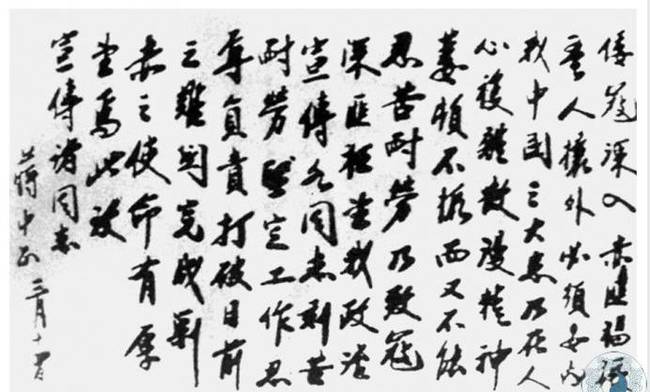 倭寇深入赤匪禍
吾人攘外必須安內
我中國之大患乃在人
心複雜散漫精神
萎頓不振而又不能
忍苦耐勞乃致寇
深匪望我政治
宣傳各同志刻苦
耐勞堅定工作忍
辱負責打破目前
之難關完成剿
赤之使命有厚
望焉此致
宣傳諸同志
蔣中正 三月十日